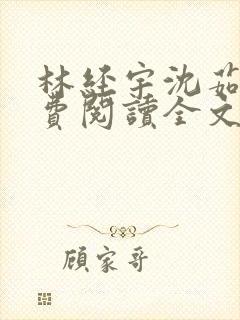 林經宇沈茹
費閱讀全文
顧家哥